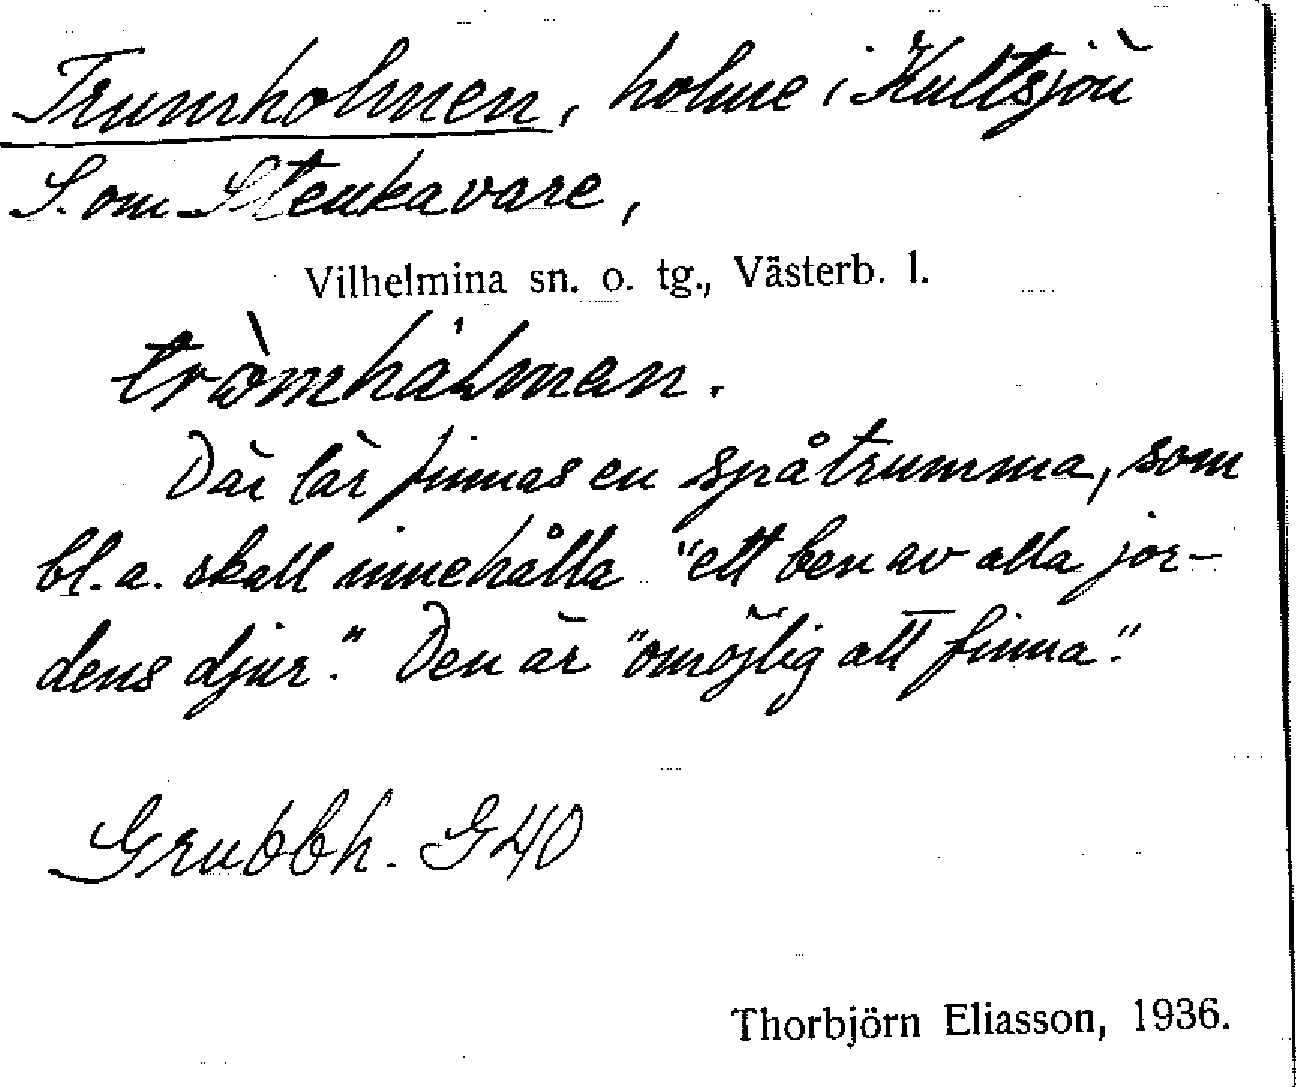 Trumholmen, holme i Kultsjön
S. om Stenkavare,
Vilhelmina sn. o. tg., Västerb. l.
tròmhålman.
Där lär finnas en spåtrumma, som
bl. a. skall innehålla "ett ben av alla jor-
dens djur." Den är "omöjlig att finna."
Grubbh. G40
Thorbjörn Eliasson, 1936.